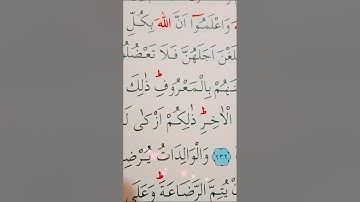 وَاعْلَمُوٓا اَنَّ اللّٰهَ بِكُلِّ
اَجَلَهُنَّ فَلَا تَعْضُلُو
بِالْمَعْرُوفِ ط ذٰلِكَ
الْاٰخِرِ ط ذٰلِكُمْ اَزْكٰى
٢٣٢ وَالْوَالِدَاتُ يُرْضِ
يُتِمَّ الرَّضَاعَةَ ط وَعَلَى